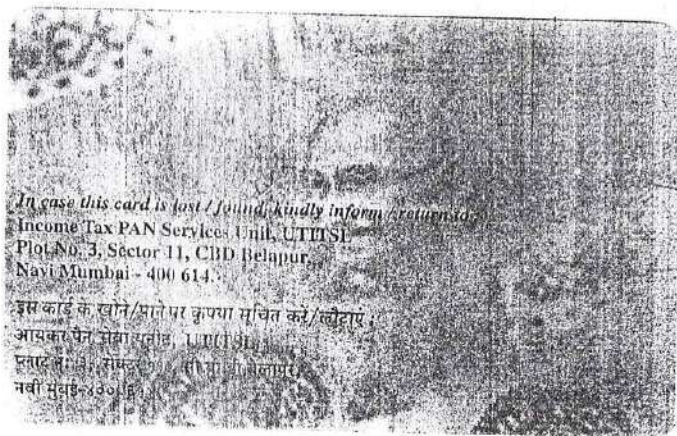 In case this card is lost / found, kindly inform / return to :
Income Tax PAN Services Unit, UTITSL
Plot No. 3, Sector 11, CBD Belapur,
Navi Mumbai - 400 614.
इस कार्ड के खोने/पाने पर कृपया सूचित करें/लौटाएं :
आयकर पैन सेवा यूनीट, UTITSL
प्लाट नं: ३, सेक्टर
नवी मुंबई-